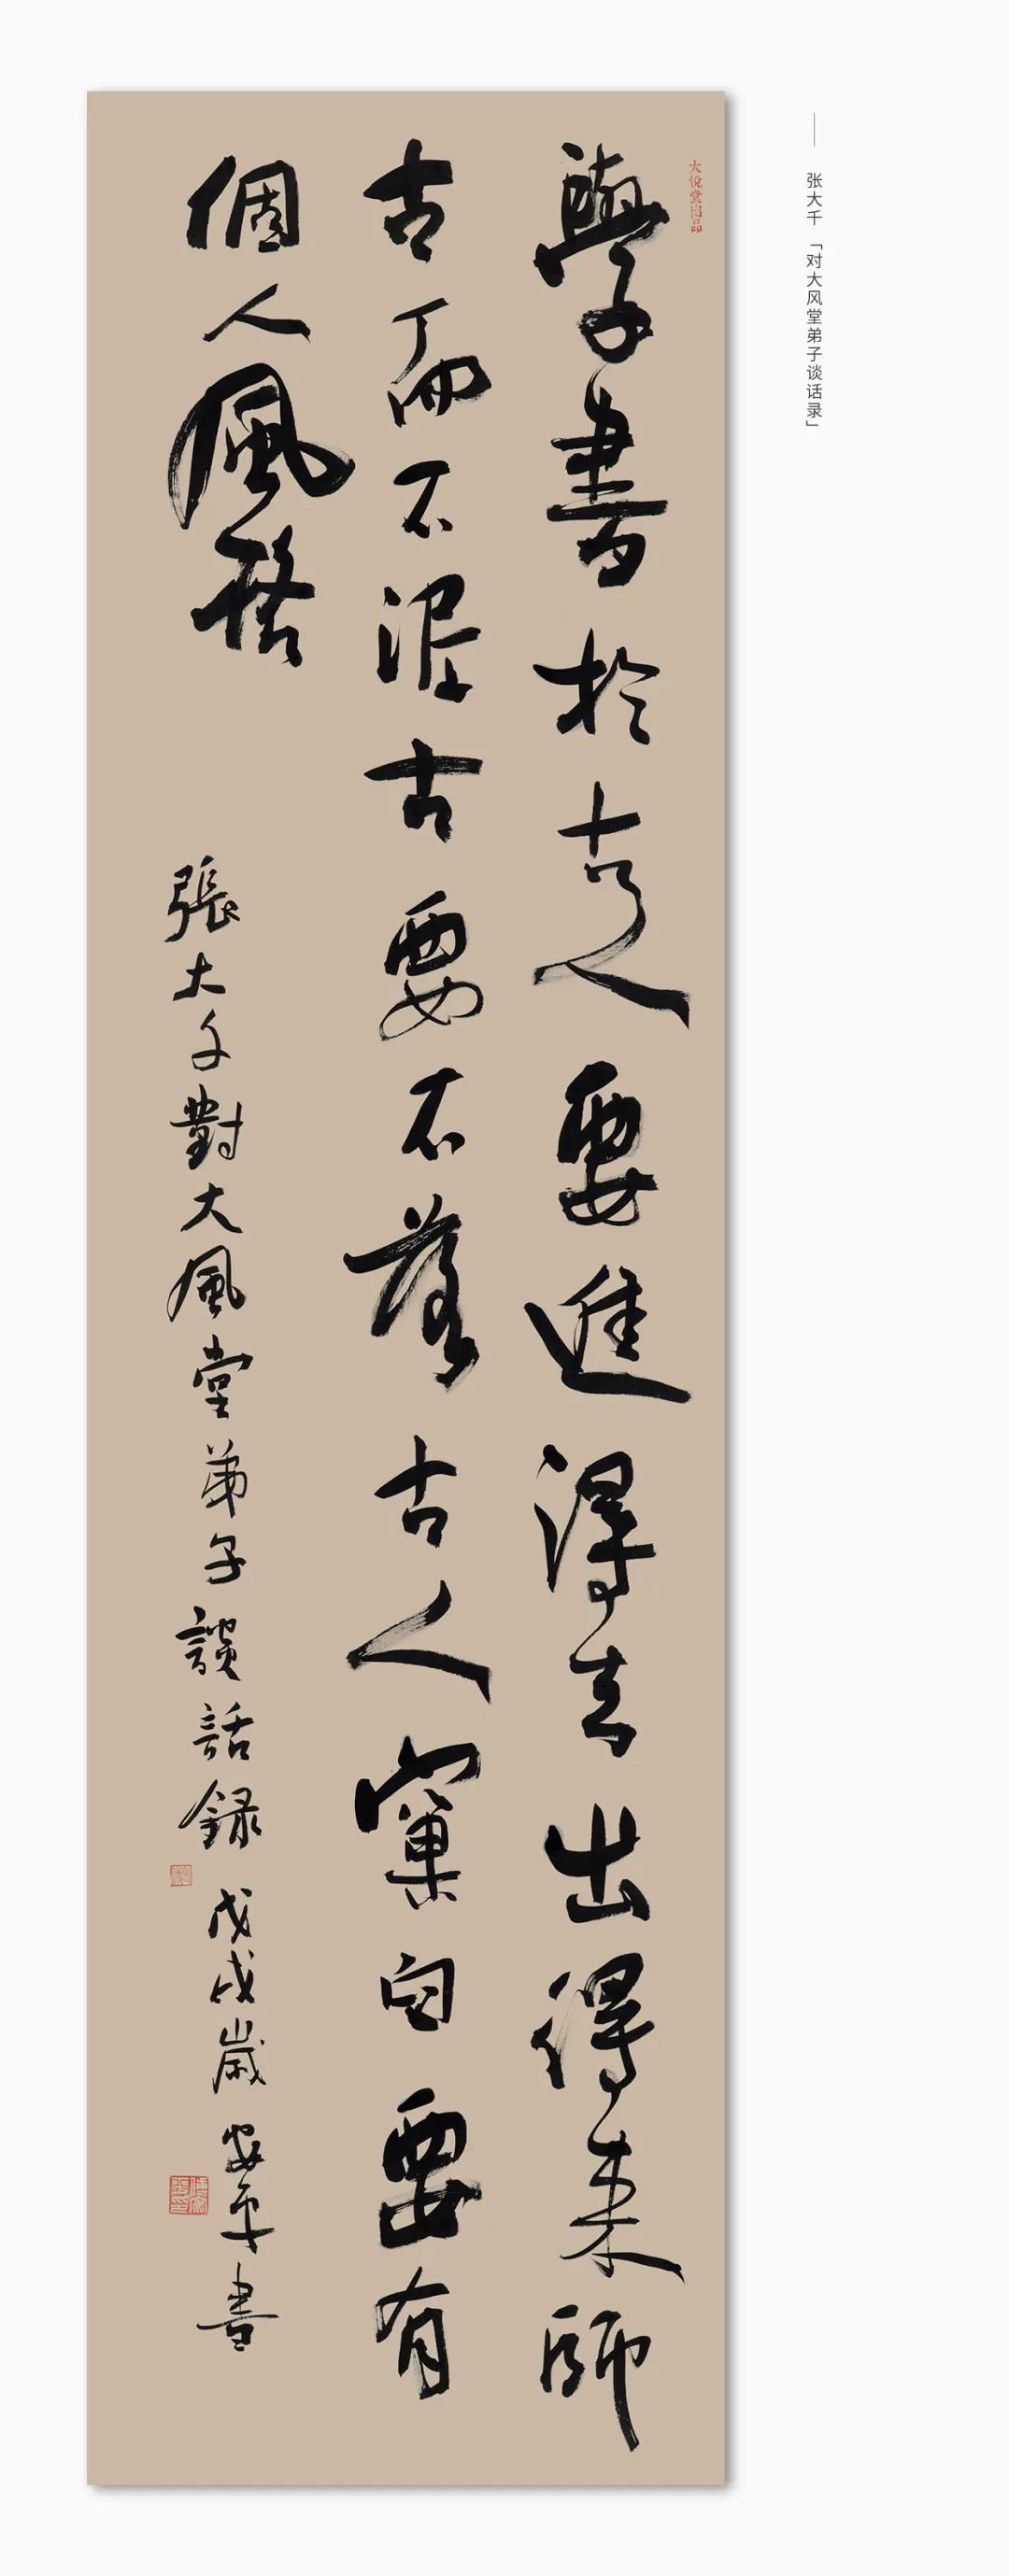 张大千「对大风堂弟子谈话录」
大悦堂出品
學書於古人要進得去出得来師
古而不泥古要不落古人窠臼要有
個人風格
張大千對大風堂弟子談話録
戊戌歲安平書